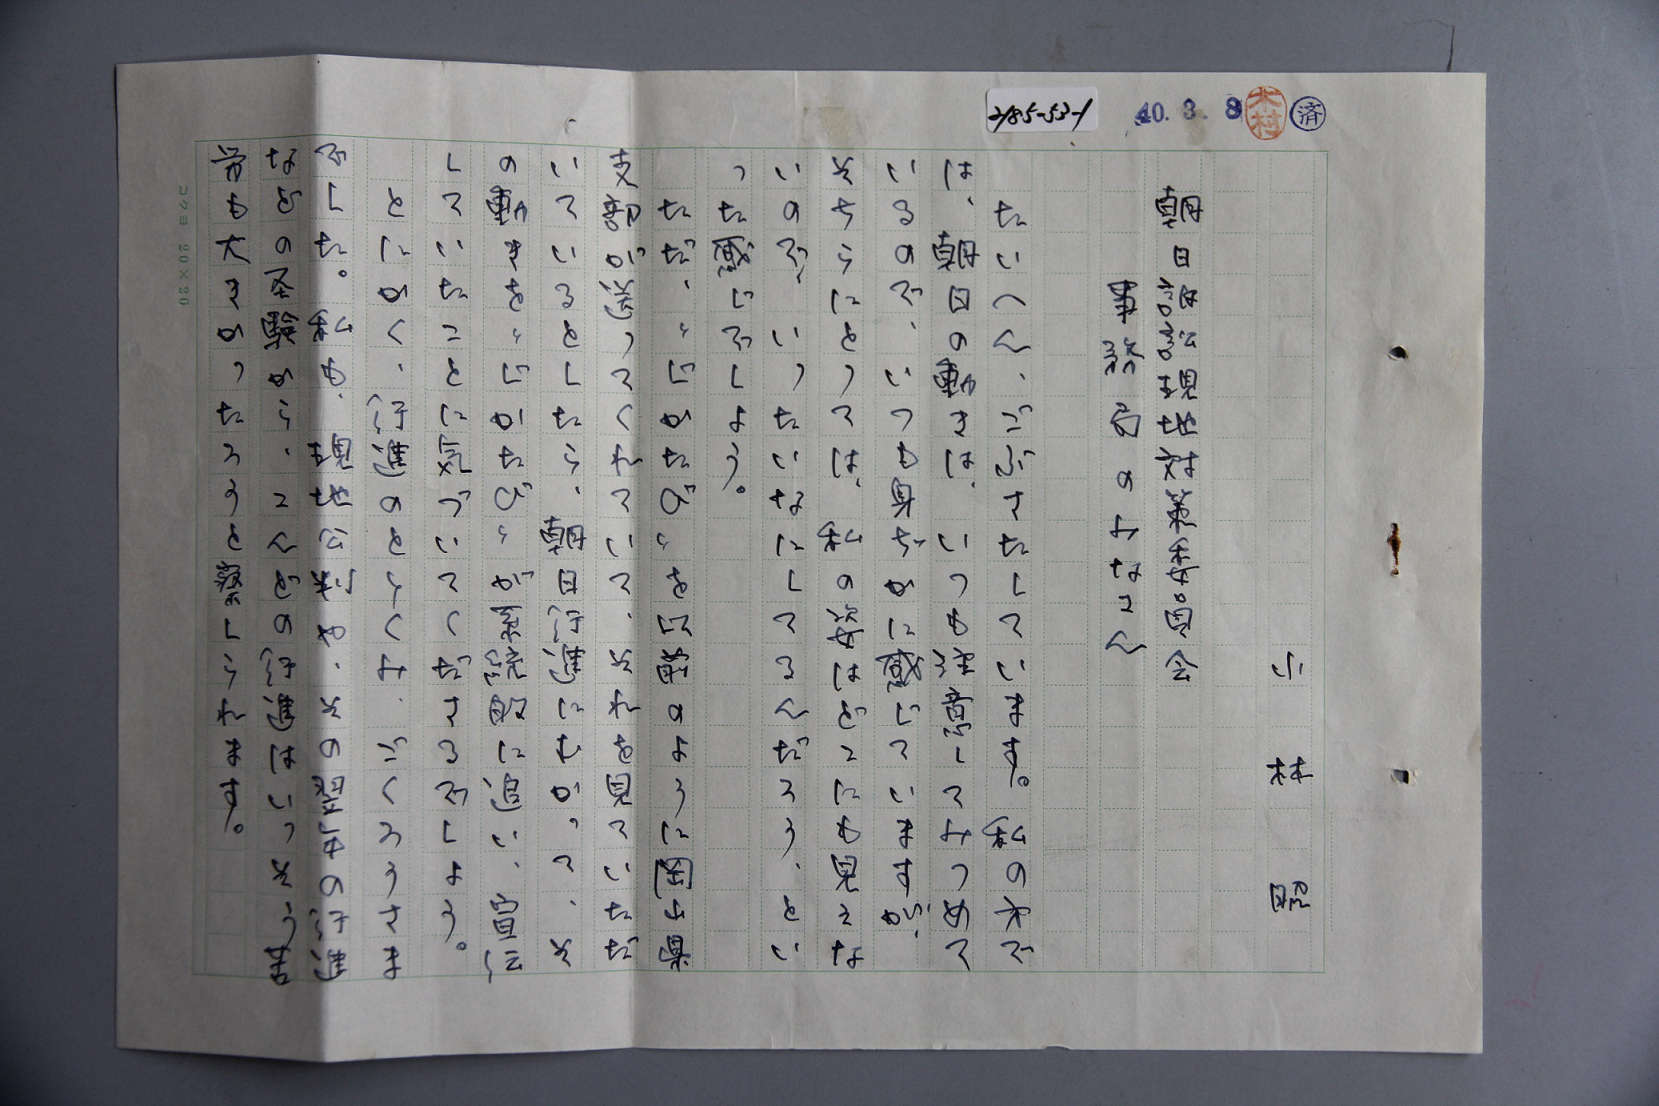 2185-53-1
40. 3. 8
木村
済
小林昭
朝日訴訟現地対策委員会
事務局のみなさん
たいへん、ごぶさたしています。私の方で
は、朝日の動きは、いつも注意してみつめて
いるので、いつも身ぢかに感じていますが、
そちらにとっては、私の姿はどこにも見えな
いので、いったいなにしてるんだろう、とい
った感じでしょう。
ただ、〝じかたび〟を以前のように岡山県
支部が送ってくれていて、それを見ていただ
いているとしたら、朝日行進にむかって、そ
の動きを〝じかたび〟が系統的に追い、宣伝
していたことに気づいてくださるでしょう。
とにかく、行進のとりくみ、ごくろうさま
でした。私も、現地公判や、その翌年の行進
などの圣験から、こんどの行進はいっそう苦
労も大きかったろうと察しられます。
コクヨ 20×20